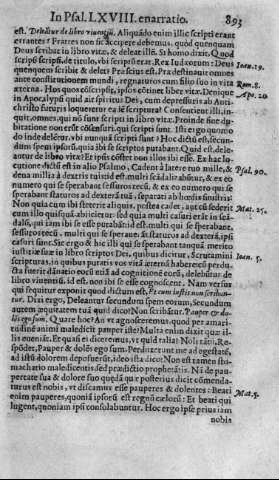 In Psal. LXVIII. enarratio. 893
est. Deleātur de libro viuentiū. Aliquādo enim illic scripti erant
errantes? Fratres non sic accipere debemus, quòd quenquam
Deus scribat in libro vitæ, & deleat illū. Si homo dixit, Quod
scripsi scripsi, de titulo, vbi scriptū erat, Rex Iudæorum: Deus
quenquem scribit & delet? Præscius est, Prædestinauit omnes
ante constitutionem mundi, regnaturos cum filio suo in vita
æterna. Hos quos cōscripsit, ipsos cōtinet liber vitæ. Denique
in Apocalypsi quid ait spiritus Dei, cum de pressuris ab Anti-
christo futuris loqueretur ea ipsa scriptura? Consentient illi, in-
quit, omnes, qui nō sunt scripti in libro vitæ. Proinde sine du-
bitatione non erūt cōsensuri, qui scripti sunt. Isti ergo quomo
do inde delētur, vbi nunquā scripti sunt? Hoc dictū est, secun-
dum spem ipsorū, quia ibi se scriptos putabant. Quid est, delean-
tur de libro vitæ? Et ipsis cōstet non illos ibi esse. Ex hac lo-
cutione dictū est in alio Psalmo, Cadent à latere tuo mille, &
dena millia à dextris tuis: id est multi scādalizabūtur, & ex eo
numero qui se sperabant sessuros tecū, & ex eo numero qui se
sperabant staturos ad dexterā tuā, separati ab hœdis sinistris:
Non quia cum ibi steterit aliquis, postea casurus est, aut sederit
cum illo quisquā abiicietur: sed quia multi casuri erāt in scā-
dalū, qui iam ibi se esse putabāt: id est, multi qui se sperabant
sessuros tecū, multi qui se sperauerāt staturos ad dexterā, ipsi
casuri sunt. Sic ergo & hîc illi qui se sperabant tanquā merito
iustitiæ suæ in libro scriptos Dei, quibus dicitur, Scrutamini
scripturas, in quibus putatis vos vitā æternā habere: cū perdu-
cta fuerit dānatio eorū etiā ad cognitionē eorū, delebūtur de
libro viuentiū, id est, non ibi se esse cognoscent. Nam versus
qui sequitur exponit quod dictum est, Et cum iustis non scriban-
tur. Dixi ergo, Deleantur secundum spem eorum, Secundum
autem æquitatem tuā quid dico? Non scribātur. Pauper & do-
lēs ego sum. Quare hoc? An vt agnosceremus, quod per amari-
tudinē animi maledicit pauper iste? Multa enim dixit quæ il-
lis eueniāt. Et quasi ei diceremus, vt quid talia? Noli tātū, Re-
spōdet, Pauper & dolēs ego sum. Perduxerunt me ad egestatē,
ad istū dolorem deposuerūt, ideo ista dico. Non est tamen sto-
machatio maledicentis, sed prædictio prophetātis. Nā de pau-
pertate sua & dolore suo quędā quæ posterius dicit cōmenda-
turus est nobis, vt discamus esse pauperes & dolentes: Beati
enim pauperes, quoniā ipsorū est regnū cœlorū: Et beati qui
lugent, quoniam ipsi consolabuntur. Hoc ergo ipse prius iam
nobis
Ioan. 19.
Rom. 8.
Apo. 20
Psal. 90.
Mat. 25.
Ioan. 5.
Mat. 5.